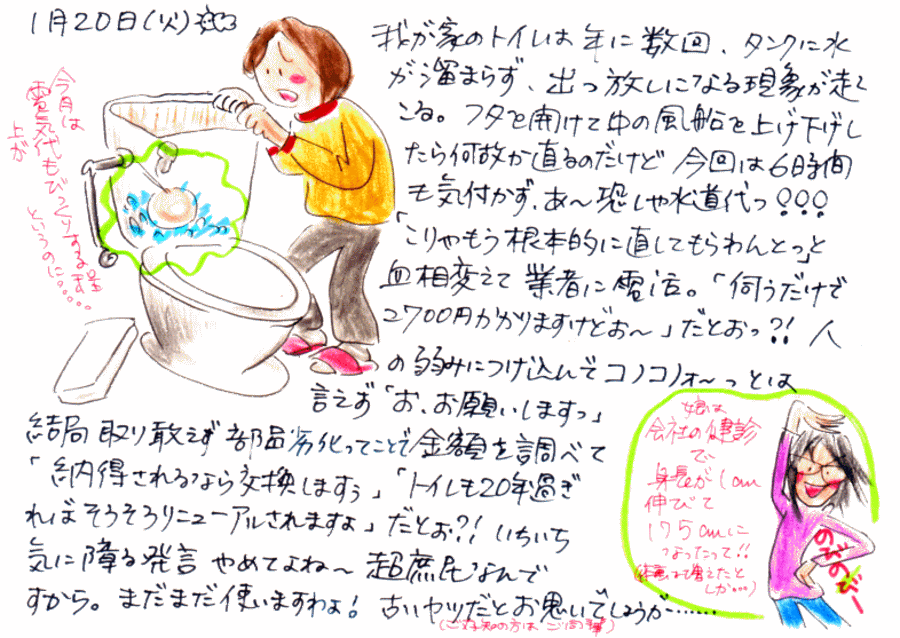 1月20日(火)
我が家のトイレは年に数回、タンクに水
が溜まらず、出っ放しになる現象が起こ
こる。フタを開けて中の風船を上げ下げし
たら何故か直るのだけど今回は6日時間
も気付かず、あ〜恐しや水道代っ
「こりゃもう根本的に直してもらわんとっ」と
血相変えて業者に電話。「伺うだけで
2700円かかりますけどぉ〜」だとおっ?! 人
の弱みにつけ込んでコノコノォ〜っとは
言えず「お、お願いしますっ」
結局取り敢えず部品劣化ってことで金額を調べて
「納得されるなら交換しますぅ」「トイレも20年過ぎ
ればそろそろリニューアルされますよ」だとぉ?! いちいち
気に障る発言やめてよね〜超庶民なんで
すから。まだまだ使いますわよ! 古いヤツだとお思いでしょうが……
(ご存知の方はご同輩)
今月は
電気代もびっくりする程
上が
というのに……
娘は
会社の健診
で
身長が1cm
伸びて
175cmに
なったって!!
のびのびー